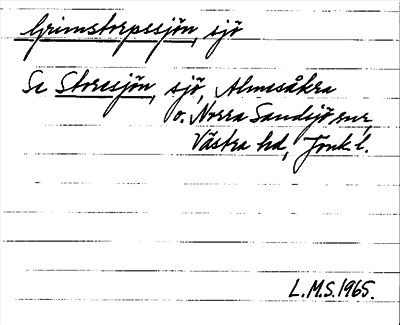 Grimstorpssjön, sjö
Se Storesjön, sjö, Almesåkra
o. Norra Sandsjö snr,
Västra hd, Jönk. l.
L.M.S. 1965.